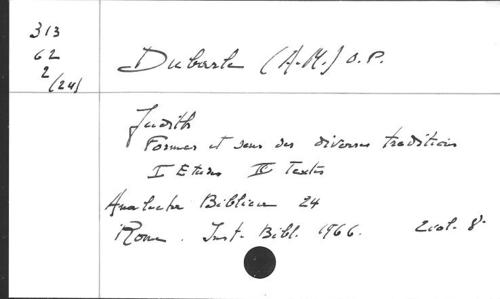 313
62
2/(24)
Dubarle (A.-M.) O.P.
Judith
Formes et sens des diverses traditions
I Etudes II Textes
Analecta Biblica 24
Rome. Inst. Bibl. 1966. 2 vol. 8°